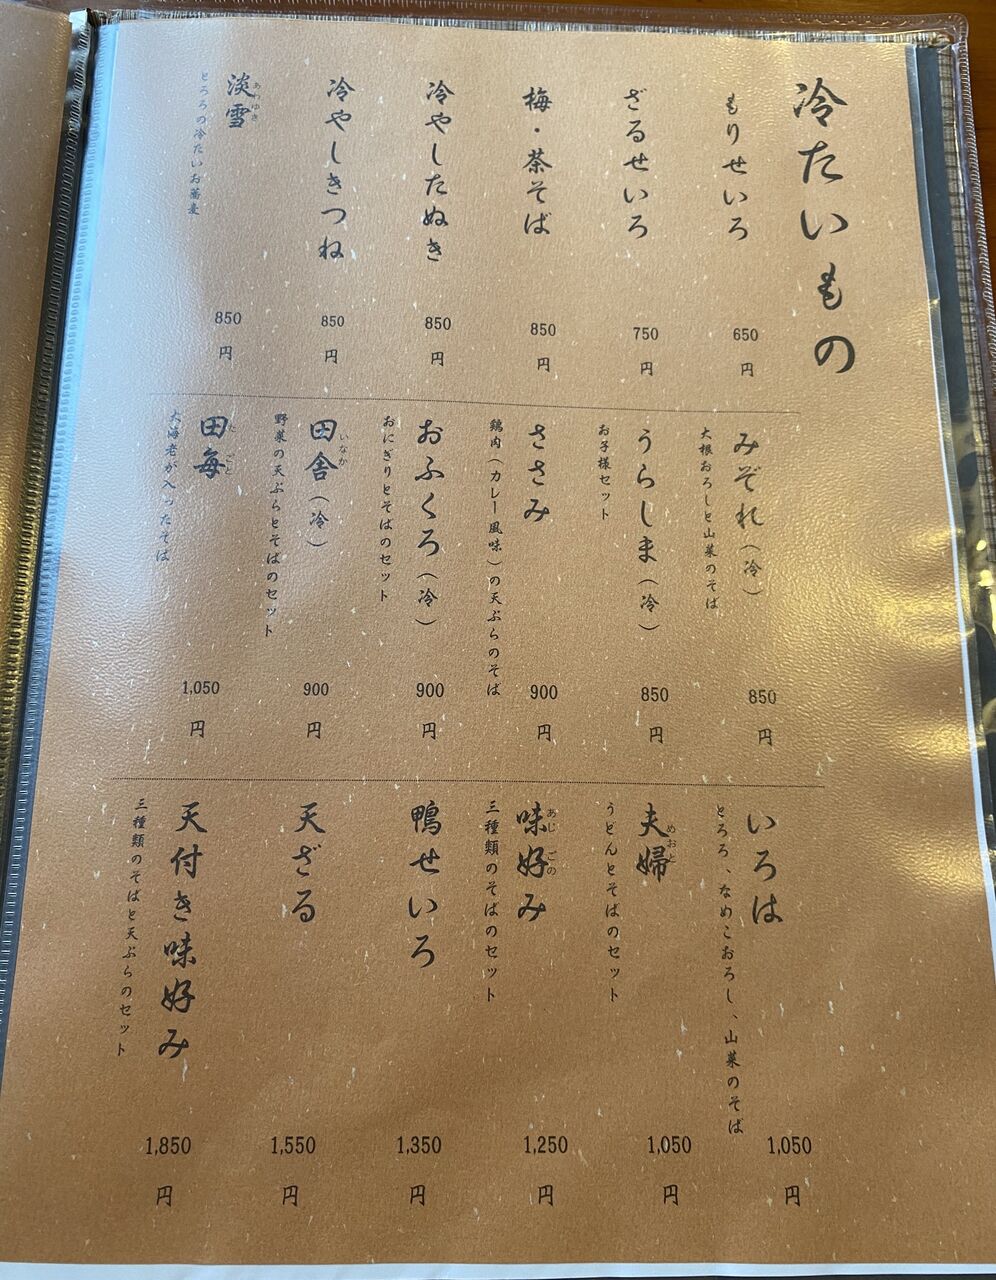 冷たいもの
もりせいろ
650円
ざるせいろ
750円
梅・茶そば
850円
冷やしたぬき
850円
冷やしきつね
850円
淡雪
あわゆき
とろろの冷たいお蕎麦
850円
みぞれ（冷）
大根おろしと山菜のそば
850円
うらしま（冷）
お子様セット
850円
ささみ
鶏肉（カレー風味）の天ぷらのそば
900円
おふくろ（冷）
おにぎりとそばのセット
900円
田舎（冷）
いなか
野菜の天ぷらとそばのセット
900円
田毎
たごと
大海老が入ったそば
1,050円
いろは
とろろ、なめこおろし、山菜のそば
1,050円
夫婦
めおと
うどんとそばのセット
1,050円
味好み
あじごのみ
三種類のそばのセット
1,250円
鴨せいろ
1,350円
天ざる
1,550円
天付き味好み
三種類のそばと天ぷらのセット
1,850円